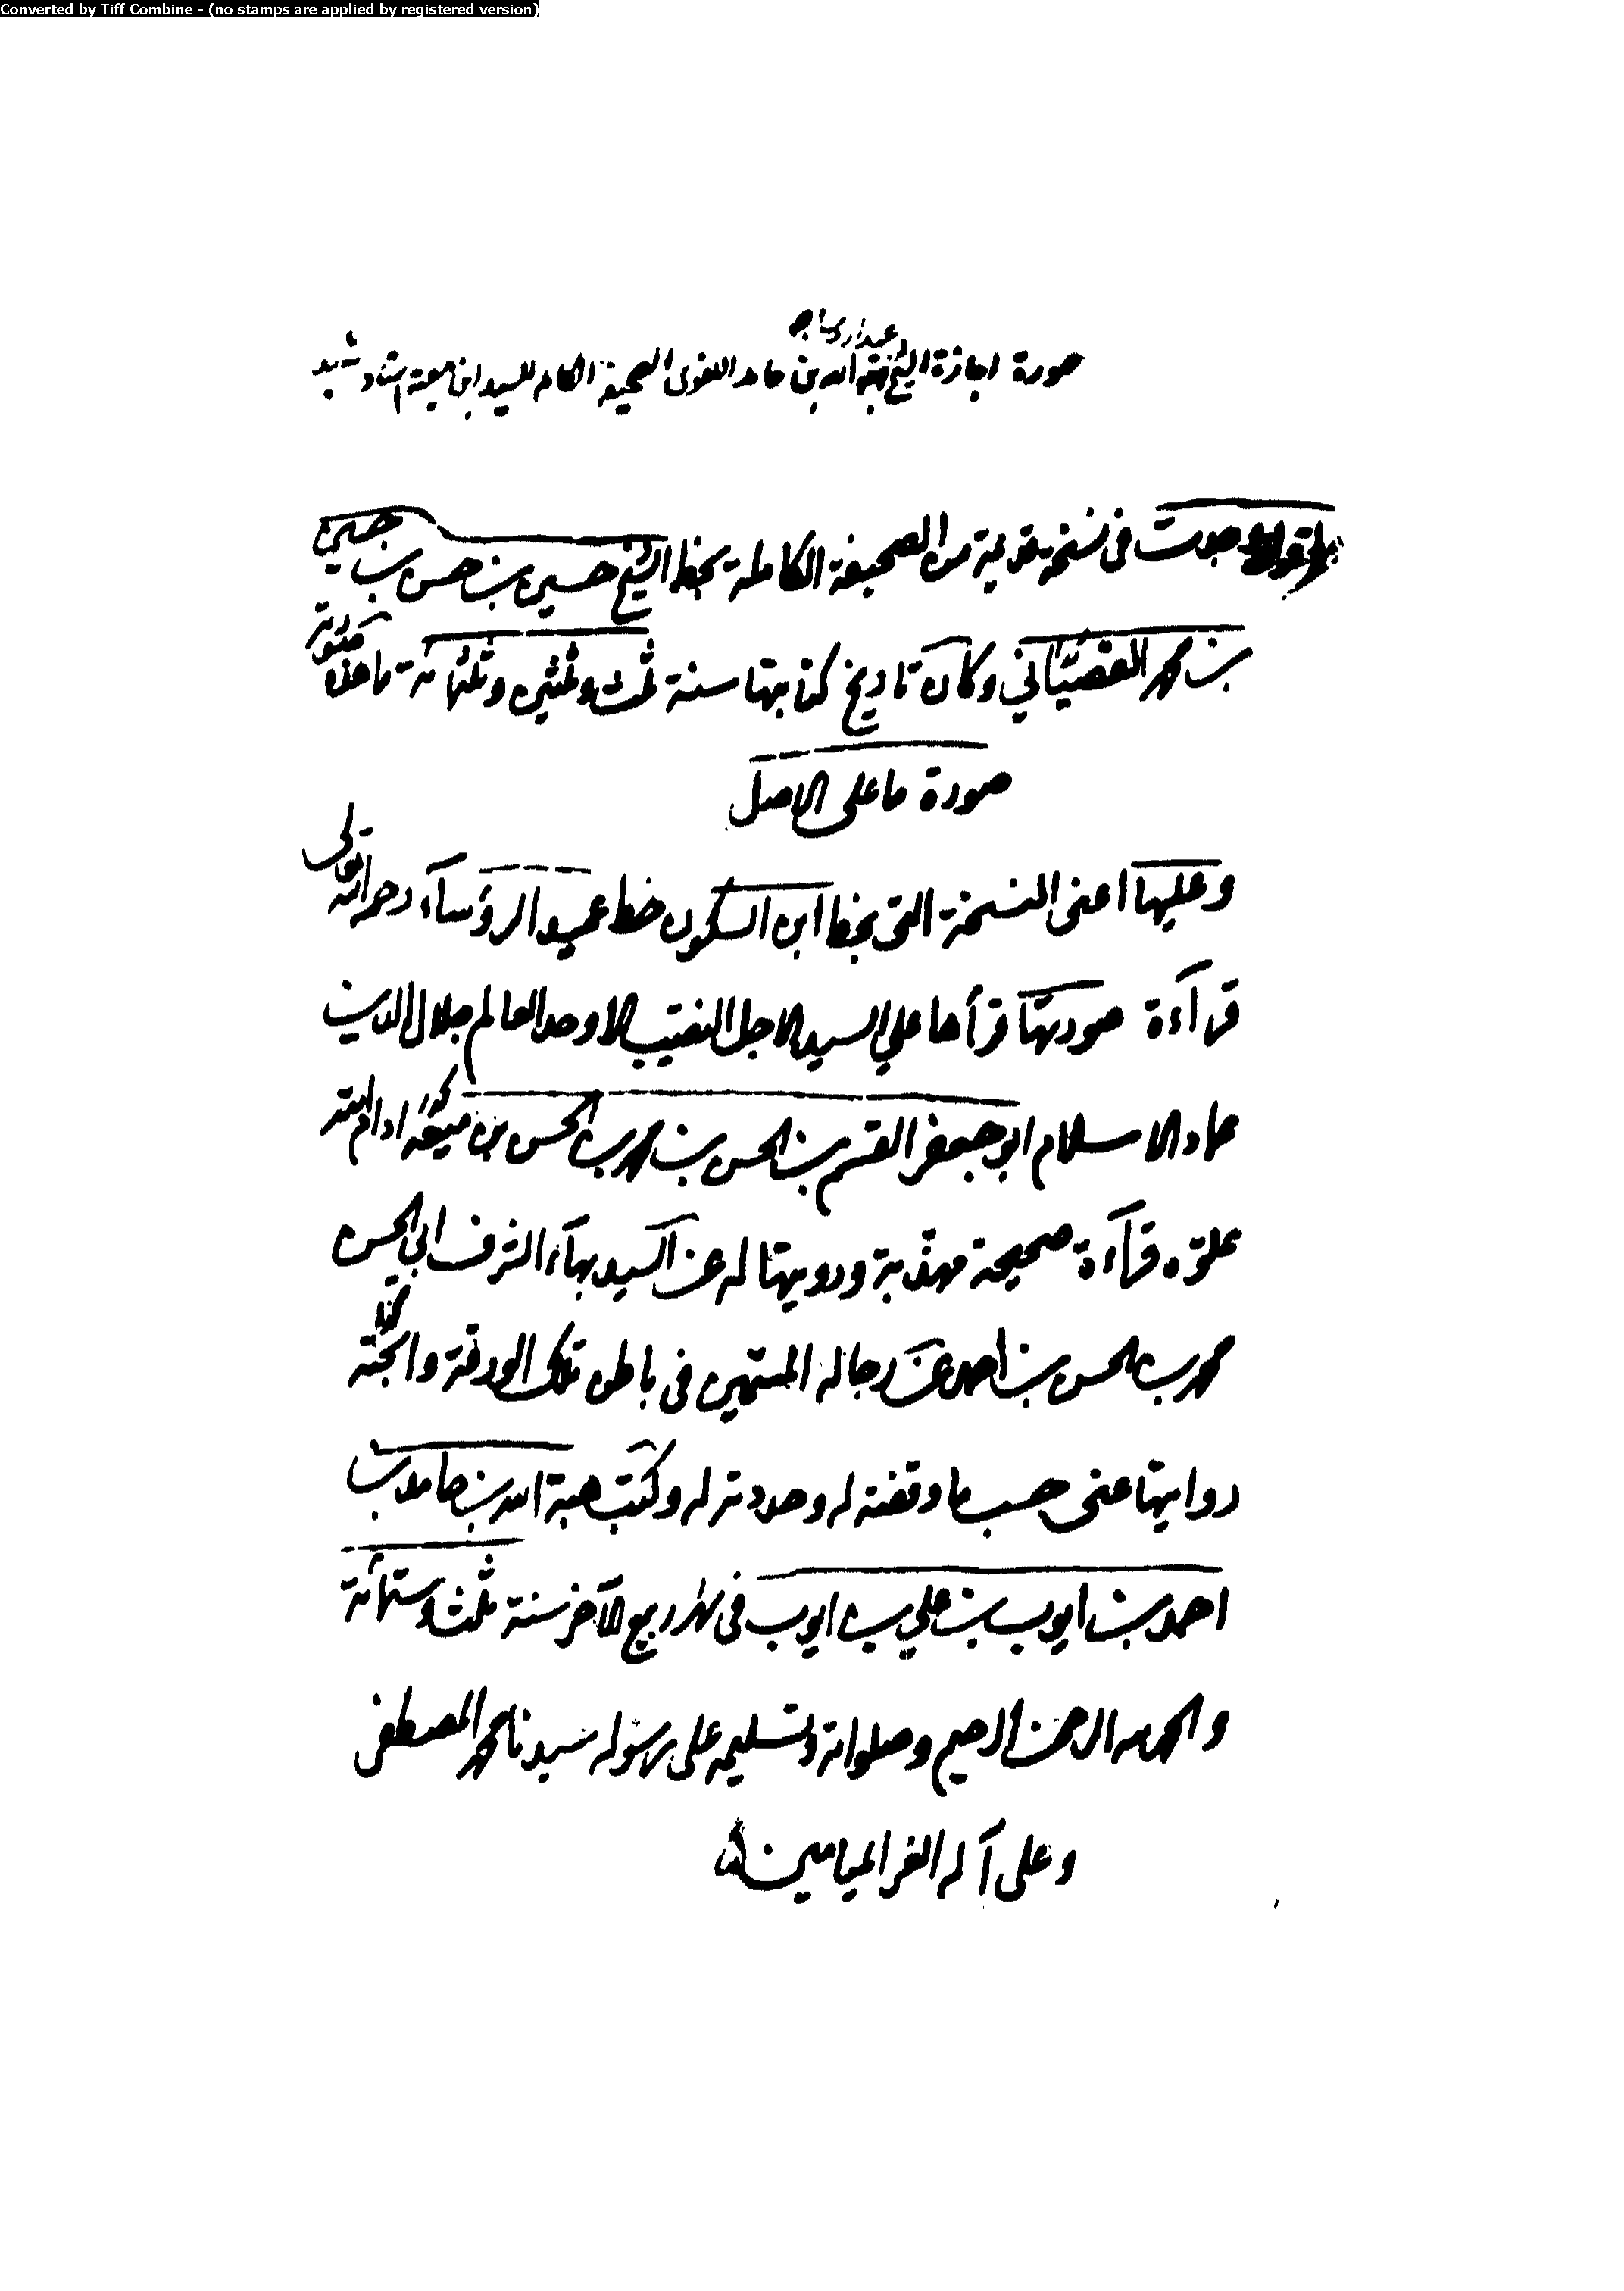 Converted by Tiff Combine - (no stamps are applied by registered version)
عميد الرؤساء
صورة اجازة الشيخ هبة الله بن حامد اللغوى الصحيفة الكاملة للسيد ابن معية استاد
وجدت فى نسخة قديمة من الصحيفة الكاملة بخط الشيخ حسين بن حسن بن حسين
بن محمد القصبّاني وكان تاريخ كتابتها سنة ثلث وثلثين وثلثمائة ما هذه صورته
صورة ما على الاصل
وعليها اعنى النسخة التى بخط ابن السكون خط عميد الرؤساء رحمه الله تعالى
قرآءة صورتها قرأها علي السيد الاجل النقيب الاوحد العالم جلال الدين
عماد الاسلام ابو جعفر القسم بن الحسن بن محمد بن الحسن بن معيّة ادام الله
علوّه قرآءة صحيحة مهذّبة ورويتها له عن السيد بهآء الشرف ابي الحسن
محمد بن الحسن بن احمد عن رجاله المسمّين فى باطن تلك الورقة وابحته
روايتها عنى حسب ما وقفته له وحددته له وكتب هبة الله بن حامد بن
احمد بن ايوب بن علي بن ايوب فى شهر ربيع الآخر سنة ثلث وستمائة
والحمد لله الرحمن الرحيم وصلواته وتسليمه على رسوله سيدنا محمد المصطفى
وعلى آله الغر الميامين